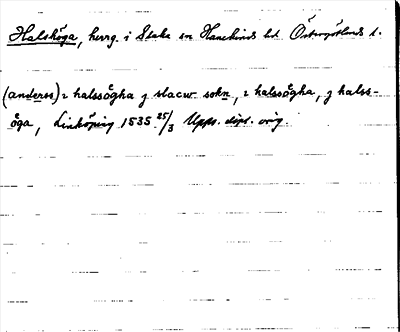 Halshöga, herrg. i Slaka sn Hanekinds hd Östergötlands l.
(anderss) i halssögha j slacw sokn, i halssögha, j halss-
öga, Linköping 1535 25/3 Upps. dipl. orig.